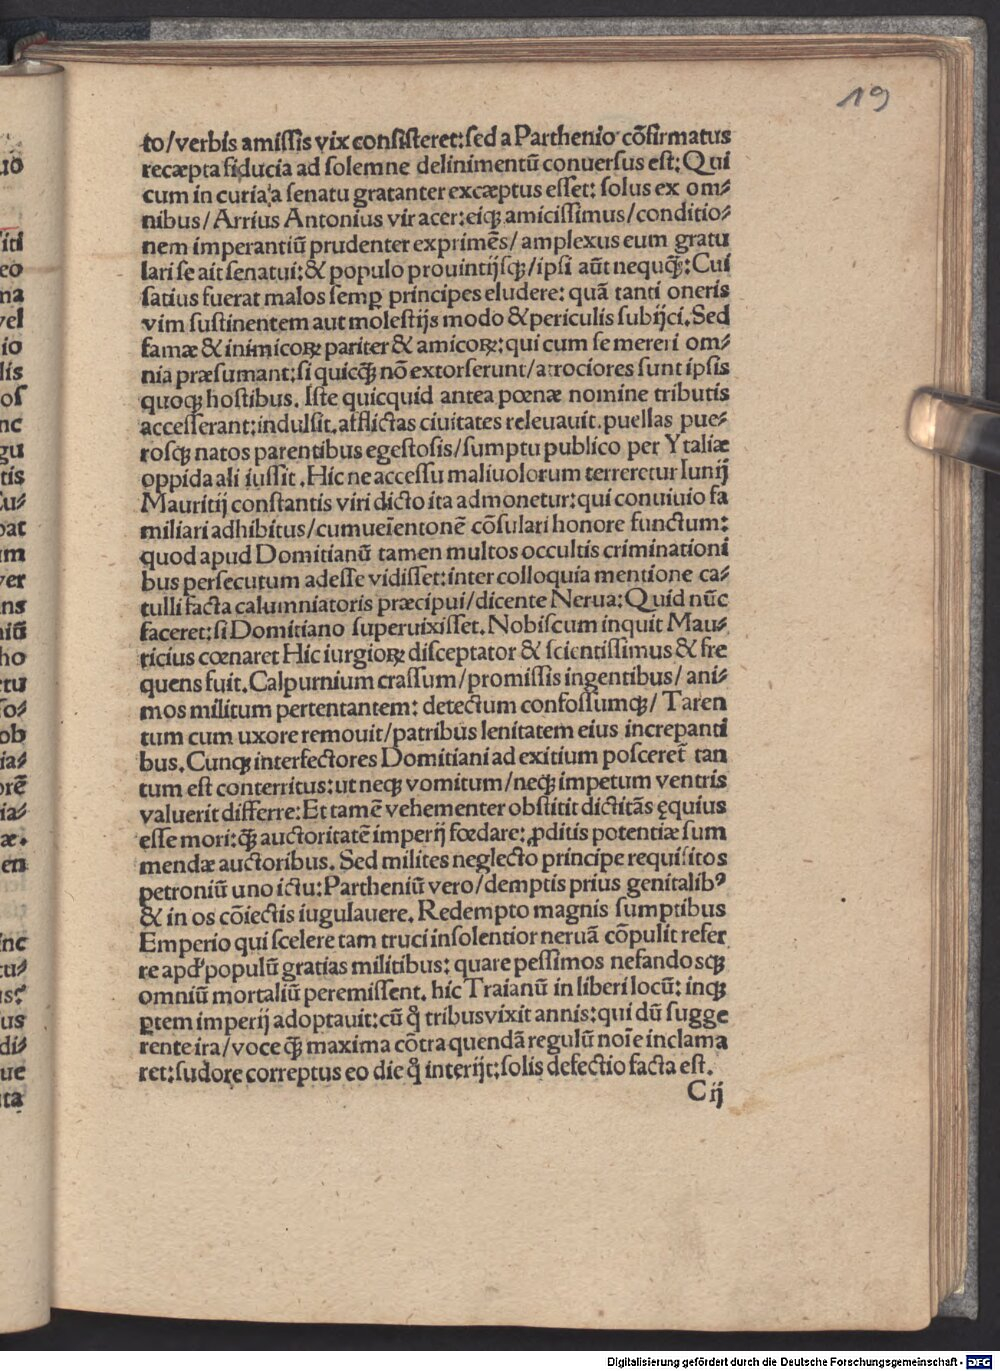 19
to/verbis amiſſis vix conſiſteret:ſed a Parthenio cõfirmatus
recæpta fiducia ad ſolemne delinimentũ conuerſus eſt:Qui
cum in curia a ſenatu gratanter excæptus eſſet: ſolus ex om⸗
nibus/Arrius Antonius vir acer:eiqꝫ amiciſſimus/conditio⸗
nem imperantiũ prudenter exprimẽs/amplexus eum gratu
lari ſe ait ſenatui:& populo prouintijſqꝫ/ipſi aũt nequq̃ꝫ:Cui
ſatius fuerat malos ſemꝑ principes eludere: quã tanti oneris
vim ſuſtinentem aut moleſtijs modo & periculis ſubijci.Sed
famæ & inimicoꝝ pariter & amicoꝝ:qui cum ſe mereri om⸗
nia præſumant:ſi quicq̃ꝫ nõ extorſerunt/atrociores ſunt ipſis
quoqꝫ hoſtibus. Iſte quicquid antea pœnæ nomine tributis
acceſſerant:indulſit.afflictas ciuitates releuauit.puellas pue⸗
roſqꝫ natos parentibus egeſtoſis/ſumptu publico per Ytaliæ
oppida ali iuſſit.Hic ne acceſſu maliuolorum terreretur Iunij
Mauritij conſtantis viri dicto ita admonetur:qui conuiuio fa
miliari adhibitus/cumueĩentonẽ cõſulari honore functum:
quod apud Domitianũ tamen multos occultis criminationi
bus perſecutum adeſſe vidiſſet:inter colloquia mentione ca⸗
tulli facta calumniatoris præcipui/dicente Nerua:Quid nũc
faceret:ſi Domitiano ſuperuixiſſet.Nobiſcum inquit Mau⸗
ricius cœnaret Hic iurgioꝝ diſceptator & ſcientiſſimus & fre
quens fuit.Calpurnium craſſum/promiſſis ingentibus/ ani⸗
mos militum pertentantem: detectum confoſſumqꝫ/ Taren
tum cum uxore remouit/patribus lenitatem eius increpanti
bus.Cunqꝫ interfectores Domitiani ad exitium poſceret̃ tan
tum eſt conterritus:ut neqꝫ vomitum/neqꝫ impetum ventris
valuerit differre:Et tamẽ vehementer obſtitit dictitãs ęquius
eſſe mori:q̃ꝫ auctoritatẽ imperij fœdare: ꝓditis potentiæ ſum
mendæ auctoribus. Sed milites neglecto principe requiſitos
petroniũ uno ictu:Partheniũ vero/demptis prius genitalibꝰ
& in os cõiectis iugulauere.Redempto magnis ſumptibus
Emperio qui ſcelere tam truci inſolentior neruã cõpulit refer
re apd' populũ gratias militibus: quare peſſimos nefandoſqꝫ
omniũ mortaliũ peremiſſent. hic Traianũ in liberi locũ: inqꝫ
ꝑtem imperij adoptauit:cũ q̊ tribus vixit annis:qui dũ ſugge
rente ira/voce q̃ꝫ maxima cõtra quendã regulũ noĩe inclama
ret:ſudore correptus eo die q̊ interijt:ſolis defectio facta eſt.
C ij
Digitalisierung gefördert durch die Deutsche Forschungsgemeinschaft - DFG